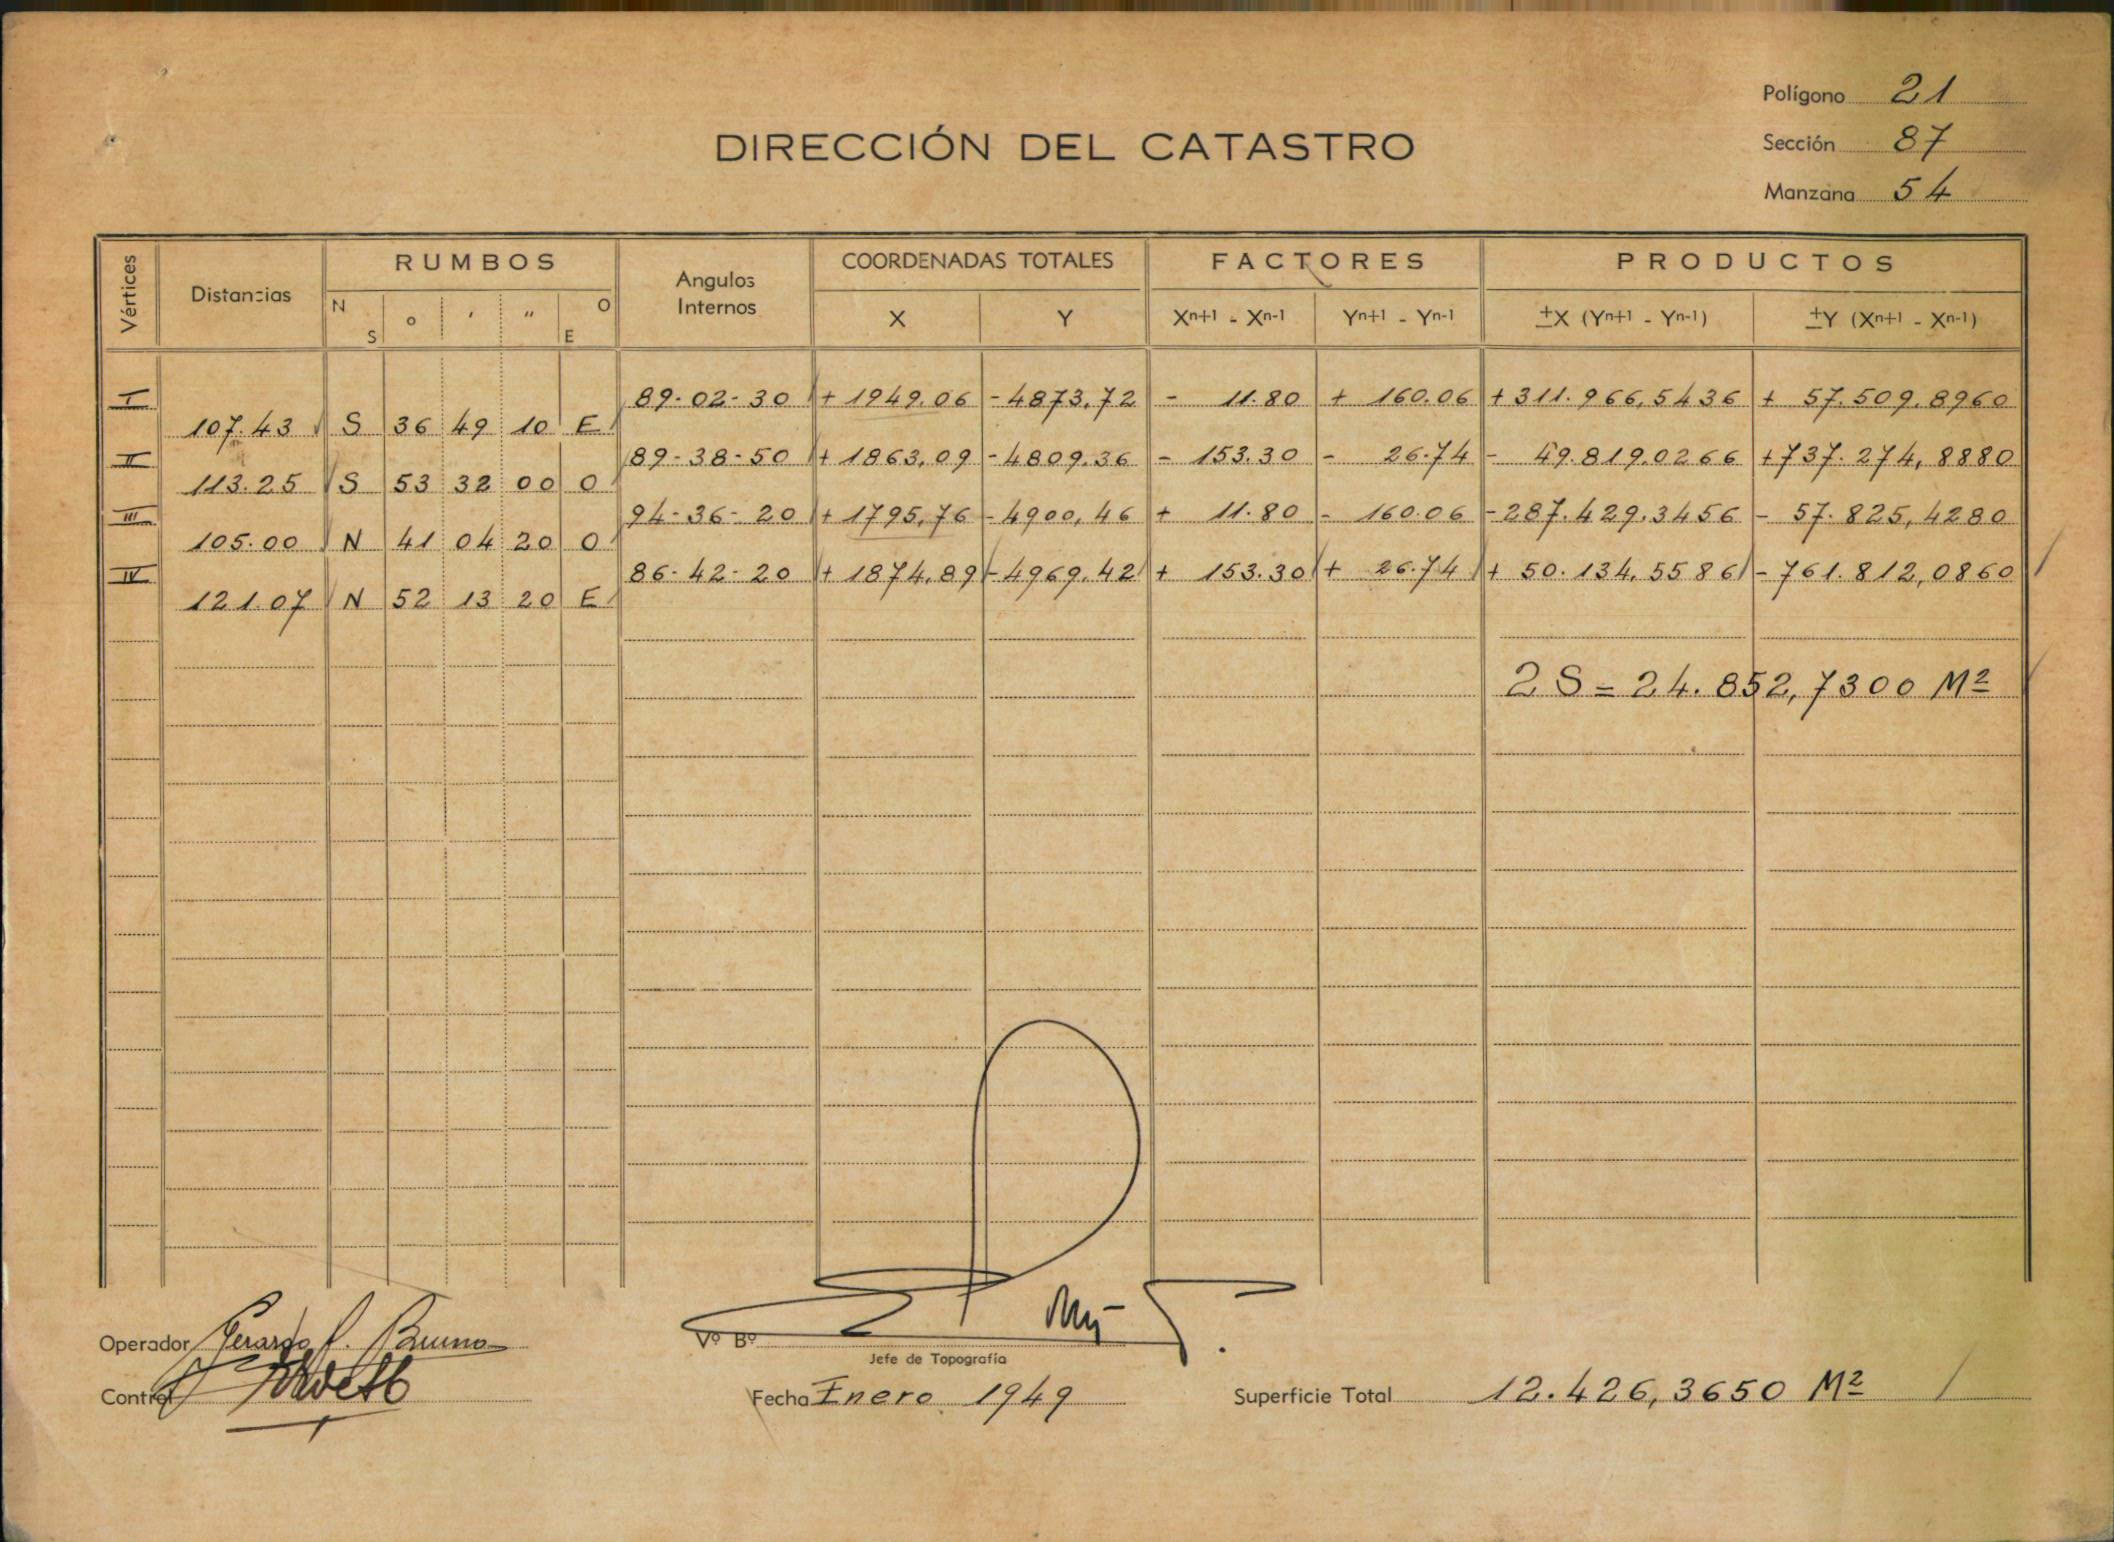 Polígono 21
DIRECCIÓN DEL CATASTRO
Sección 87
Manzana 54
Vértices Distancias RUMBOS Angulos Internos COORDENADAS TOTALES FACTORES PRODUCTOS
N S o ' " O E X Y Xn+1 - Xn-1 Yn+1 - Yn-1 ±X (Yn+1 - Yn-1) ±Y (Xn+1 - Xn-1)
I 89-02-30 + 1949.06 -4873,72 - 11.80 + 160.06 +311.966,5436 + 57.509.8960
107.43 S 36 49 10 E
II 89-38-50 + 1863,09 -4809.36 - 153.30 - 26.74 - 49.819.0266 +737.274,8880
113.25 S 53 32 00 O
III 94-36-20 + 1795,76 -4900,46 + 11.80 - 160.06 -287.429.3456 - 57.825,4280
105.00 N 41 04 20 O
IV 86-42-20 + 1874,89 -4969,42 + 153.30 + 26.74 + 50.134,5586 -761.812,0860
121.07 N 52 13 20 E
2 S = 24.852,7300 M²
Operador Gerardo Bruno
Vº Bº
Jefe de Topografía
Control
Fecha Enero 1949
Superficie Total 12.426,3650 M²